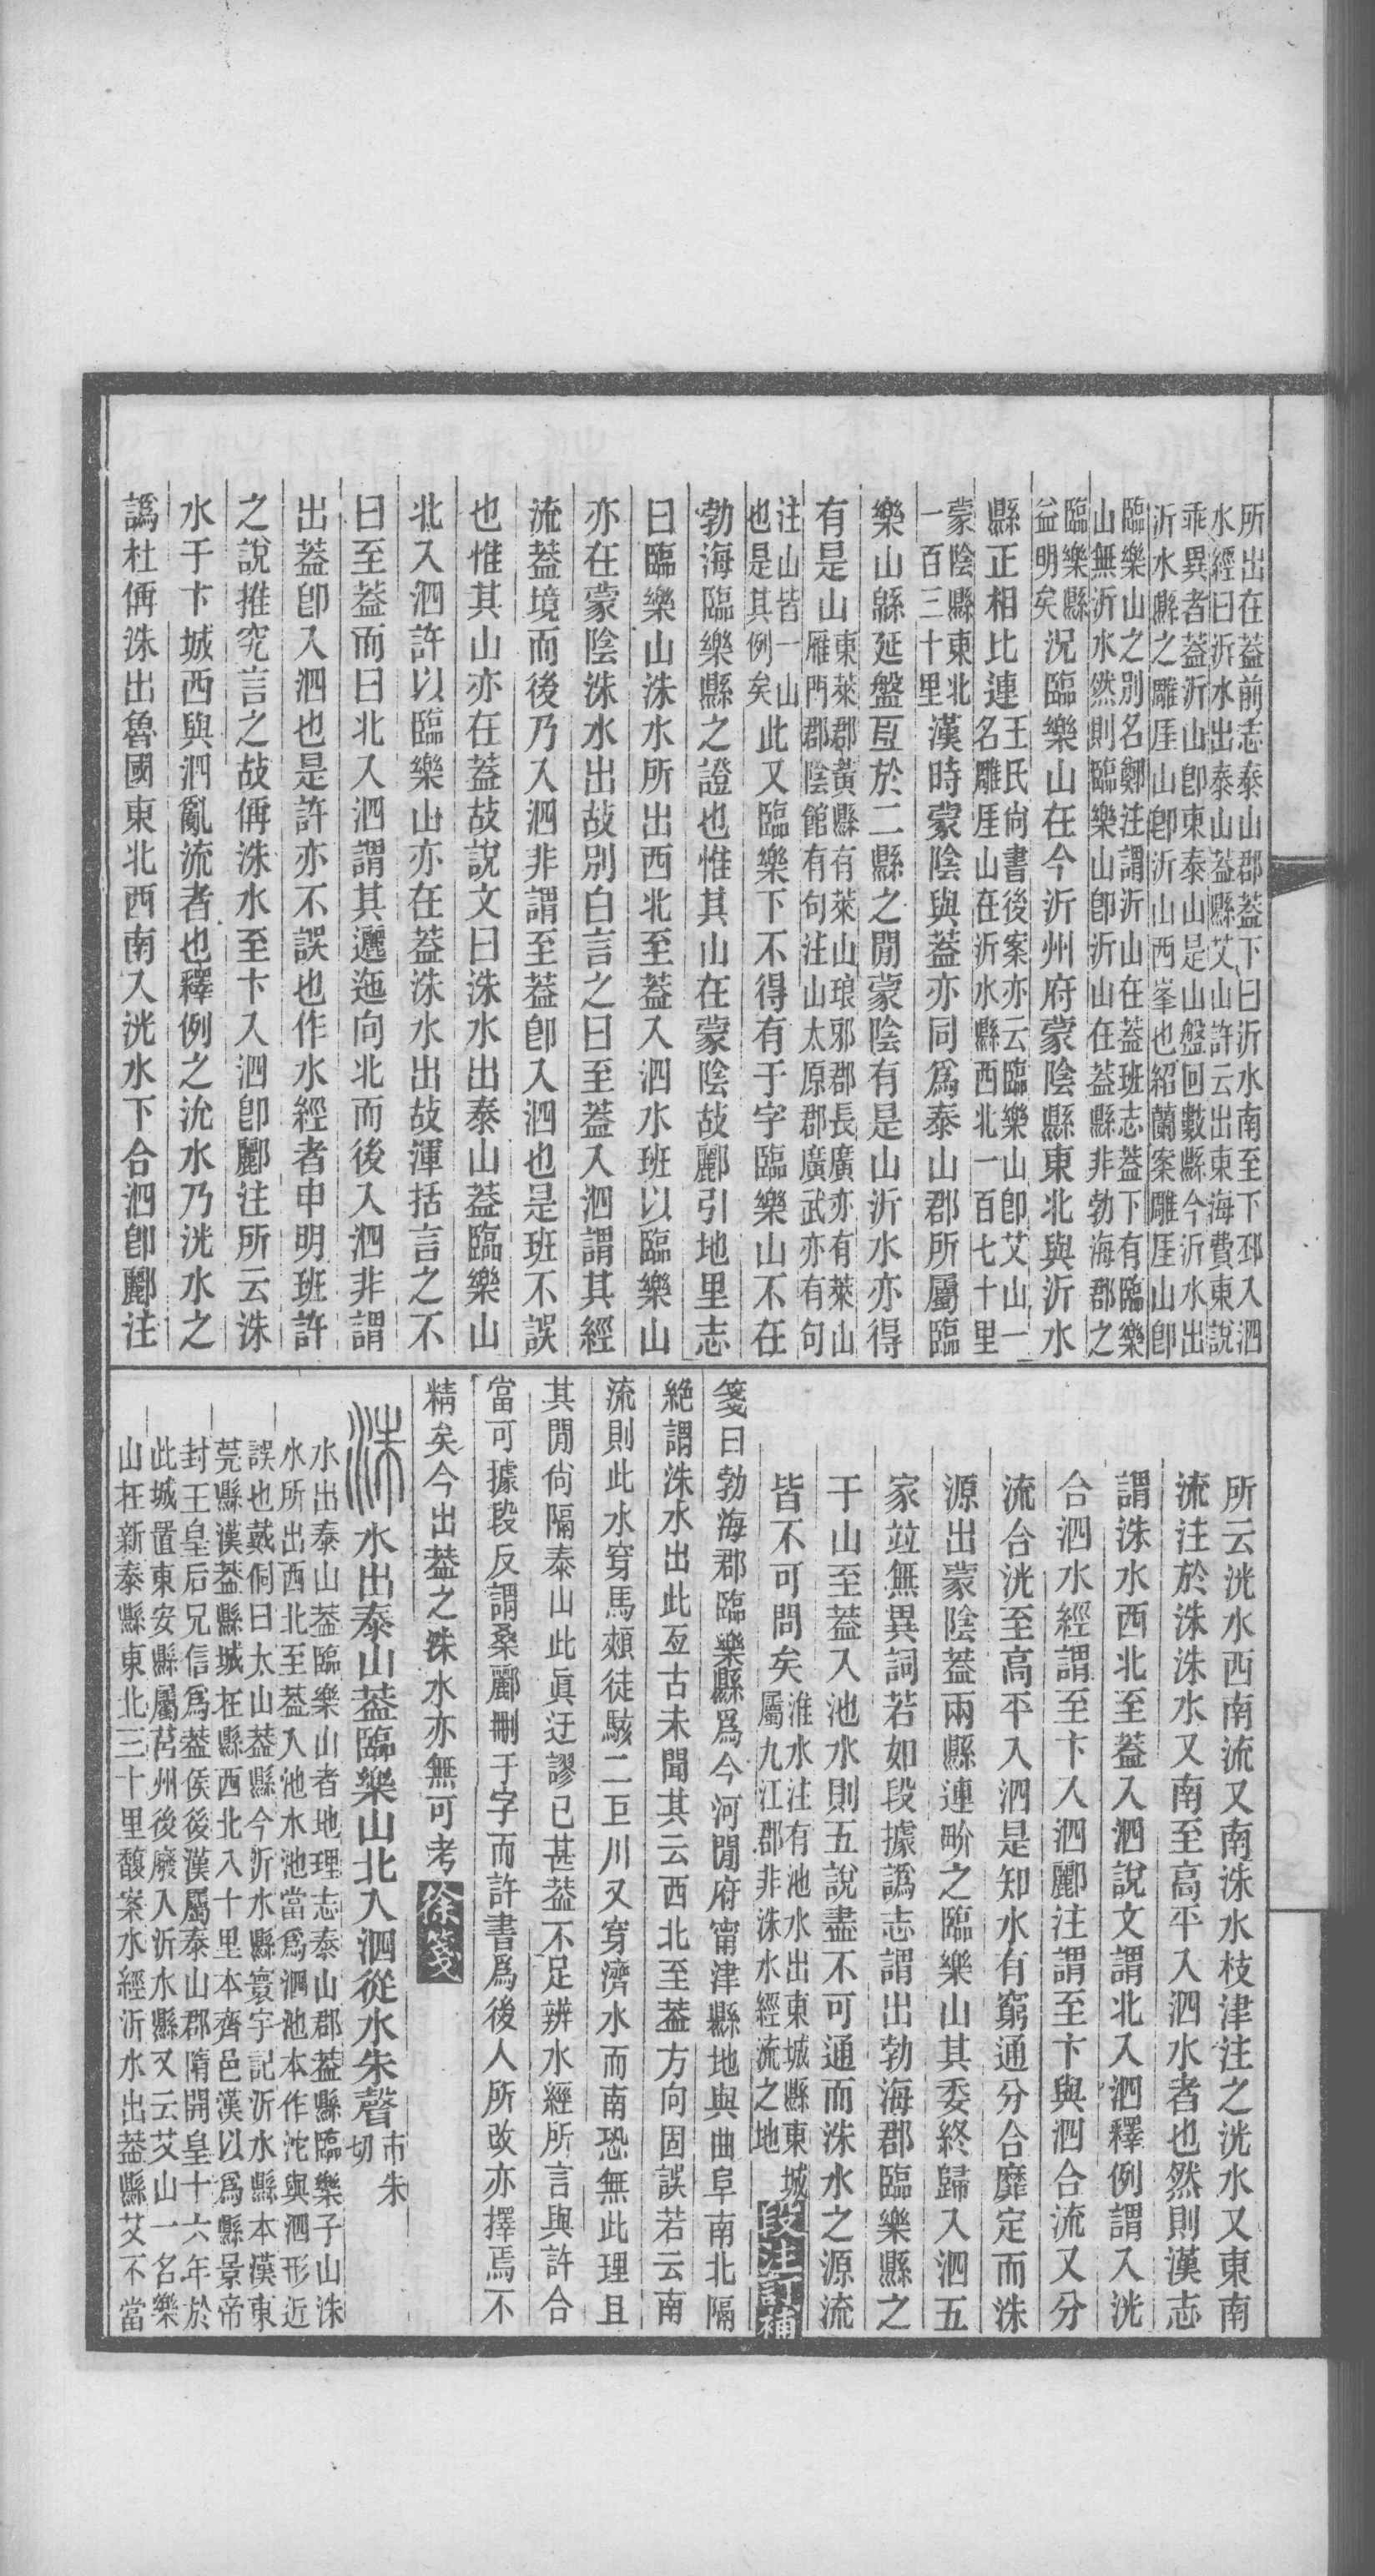 所出在葢前志泰山郡葢下曰沂水南至下邳入泗
水經曰沂水出泰山葢縣艾山許云出東海費東說
乖異者葢沂山卽東泰山是山盤回數縣今沂水出
沂水縣之雕厓山卽沂山西峯也紹蘭案雕厓山卽
臨樂山之別名鄭注謂沂山在葢班志葢下有臨樂
山無沂水然則臨樂山卽沂山在葢縣非勃海郡之
臨樂縣
益明矣
況臨樂山在今沂州府蒙陰縣東北與沂水
縣正相比連
王氏尙書後案亦云臨樂山卽艾山一
名雕厓山在沂水縣西北一百七十里
蒙陰縣東北
一百三十里
漢時蒙陰與葢亦同爲泰山郡所屬臨
樂山緜延盤亙於二縣之閒蒙陰有是山沂水亦得
有是山
東萊郡黃縣有萊山琅邪郡長廣亦有萊山
雁門郡陰館有句注山太原郡廣武亦有句
注山皆一山
也是其例矣
此又臨樂下不得有于字臨樂山不在
勃海臨樂縣之證也惟其山在蒙陰故酈引地里志
曰臨樂山洙水所出西北至葢入泗水班以臨樂山
亦在蒙陰洙水出故別白言之曰至葢入泗謂其經
流葢境而後乃入泗非謂至葢卽入泗也是班不誤
也惟其山亦在葢故說文曰洙水出泰山葢臨樂山
北入泗許以臨樂山亦在葢洙水出故渾括言之不
曰至葢而曰北入泗謂其邐迤向北而後入泗非謂
出葢卽入泗也是許亦不誤也作水經者申明班許
之說推究言之故偁洙水至卞入泗卽酈注所云洙
水于卞城西與泗亂流者也釋例之沇水乃洸水之
譌杜偁洙出魯國東北西南入洸水下合泗卽酈注
所云洸水西南流又南洙水枝津注之洸水又東南
流注於洙洙水又南至高平入泗水者也然則漢志
謂洙水西北至葢入泗說文謂北入泗釋例謂入洸
合泗水經謂至卞入泗酈注謂至卞與泗合流又分
流合洸至高平入泗是知水有窮通分合靡定而洙
源出蒙陰葢兩縣連畍之臨樂山其委終歸入泗五
家竝無異詞若如段據譌志謂出勃海郡臨樂縣之
于山至葢入池水則五說盡不可通而洙水之源流
皆不可問矣
淮水注有池水出東城縣東城
屬九江郡非洙水經流之地
段注訂補
箋曰勃海郡臨樂縣爲今河閒府甯津縣地與曲阜南北隔
絶謂洙水出此亙古未聞其云西北至葢方向固誤若云南
流則此水穿馬頰徒駭二巨川又穿濟水而南恐無此理且
其閒尙隔泰山此眞迂謬已甚葢不足辨水經所言與許合
當可據段反謂桑酈刪于字而許書爲後人所改亦擇焉不
精矣今出葢之洙水亦無可考
徐箋
洙 水出泰山葢臨樂山北入泗從水朱聲
市朱
切
水出泰山葢臨樂山者地理志泰山郡葢縣臨樂子山洙
水所出西北至葢入池水池當爲泗池本作沱與泗形近
誤也戴侗曰太山葢縣今沂水縣寰宇記沂水縣本漢東
莞縣漢葢縣城在縣西北入十里本齊邑漢以爲縣景帝
封王皇后兄信爲葢侯後漢屬泰山郡隋開皇十六年於
此城置東安縣屬莒州後廢入沂水縣又云艾山一名樂
山在新泰縣東北三十里馥案水經沂水出葢縣艾不當